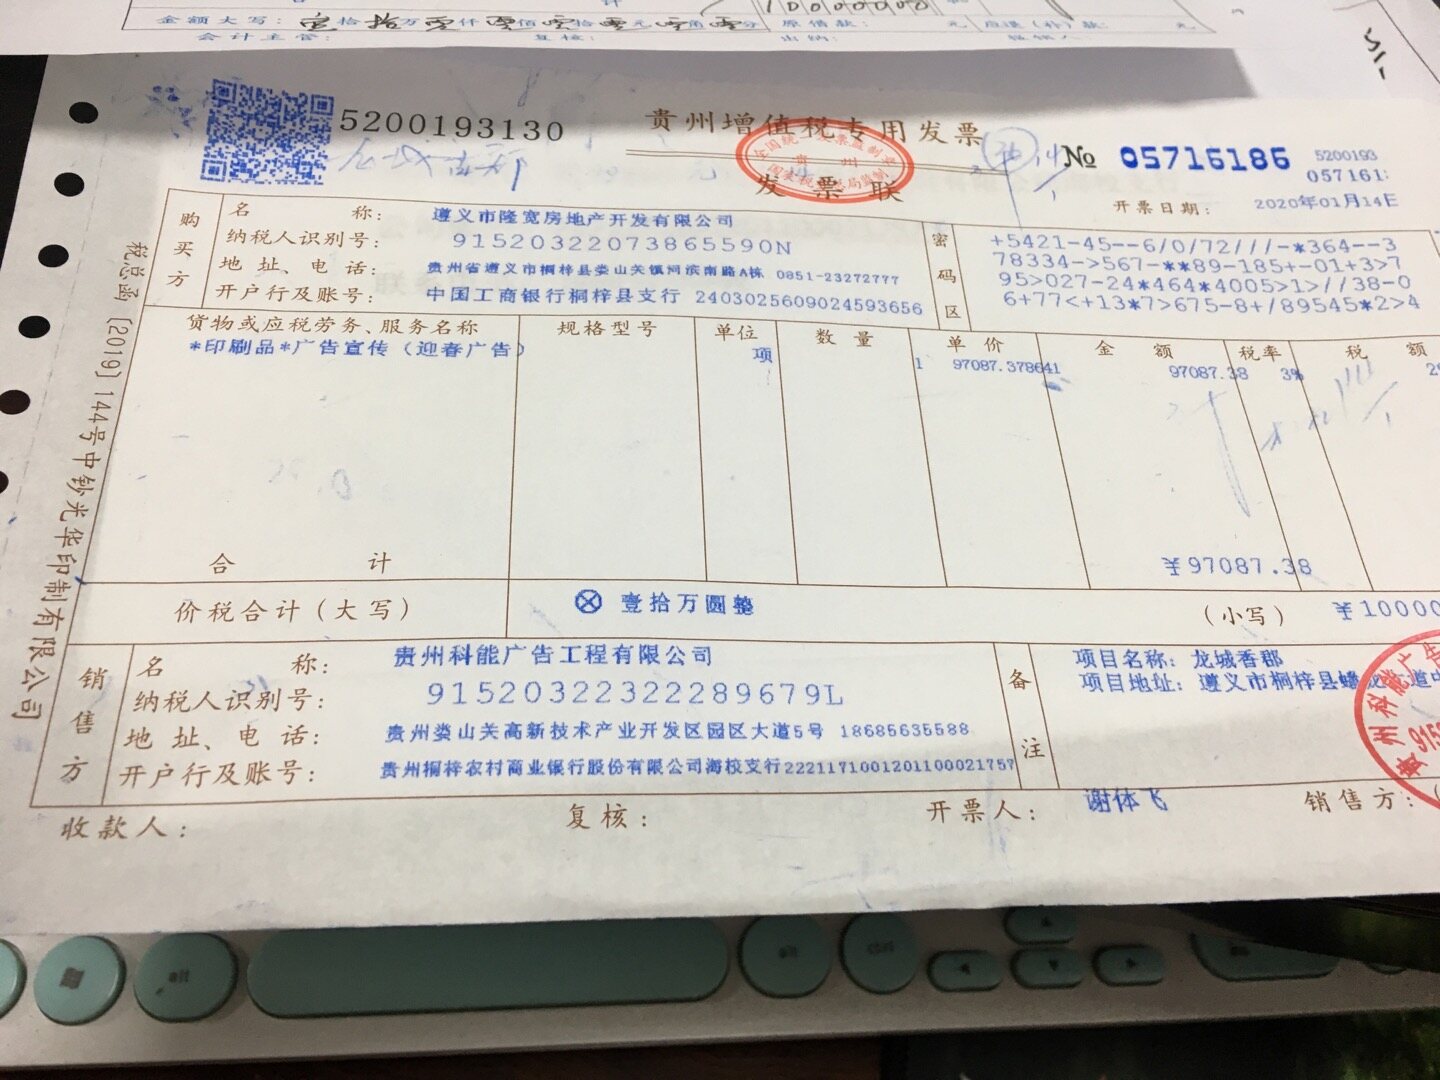 金额大写: 壹拾万零仟零佰零拾零元零角零分 原借款: 元
会计主管: 复核: 出纳:
5200193130
贵州增值税专用发票
发票联
№ 05716186
5200193
057161
开票日期: 2020年01月14日
税总函〔2019〕144号中钞光华印制有限公司
购买方
名称: 遵义市隆宽房地产开发有限公司
纳税人识别号: 91520322073865590N
地址、电话: 贵州省遵义市桐梓县娄山关镇河滨南路A栋 0851-23272777
开户行及账号: 中国工商银行桐梓县支行 2403025609024593656
密码区
+5421-45--6/0/72///-*364--3
78334->567-**89-185+-01+3>7
95>027-24*464*4005>1>//38-0
6+77<+13*7>675-8+/89545*2>4
货物或应税劳务、服务名称 规格型号 单位 数量 单价 金额 税率 税额
*印刷品*广告宣传（迎春广告） 项 1 97087.378641 97087.38 3% 29
合计 ¥97087.38
价税合计（大写） ⊗ 壹拾万圆整 （小写） ¥10000
销售方
名称: 贵州科能广告工程有限公司
纳税人识别号: 91520322322289679L
地址、电话: 贵州娄山关高新技术产业开发区园区大道5号 18685635588
开户行及账号: 贵州桐梓农村商业银行股份有限公司海校支行2221171001201100021757
备注
项目名称: 龙城香郡
项目地址: 遵义市桐梓县蟠龙大道中
贵州科能广告
收款人: 复核: 开票人: 谢体飞 销售方:
alt
alt
ctrl